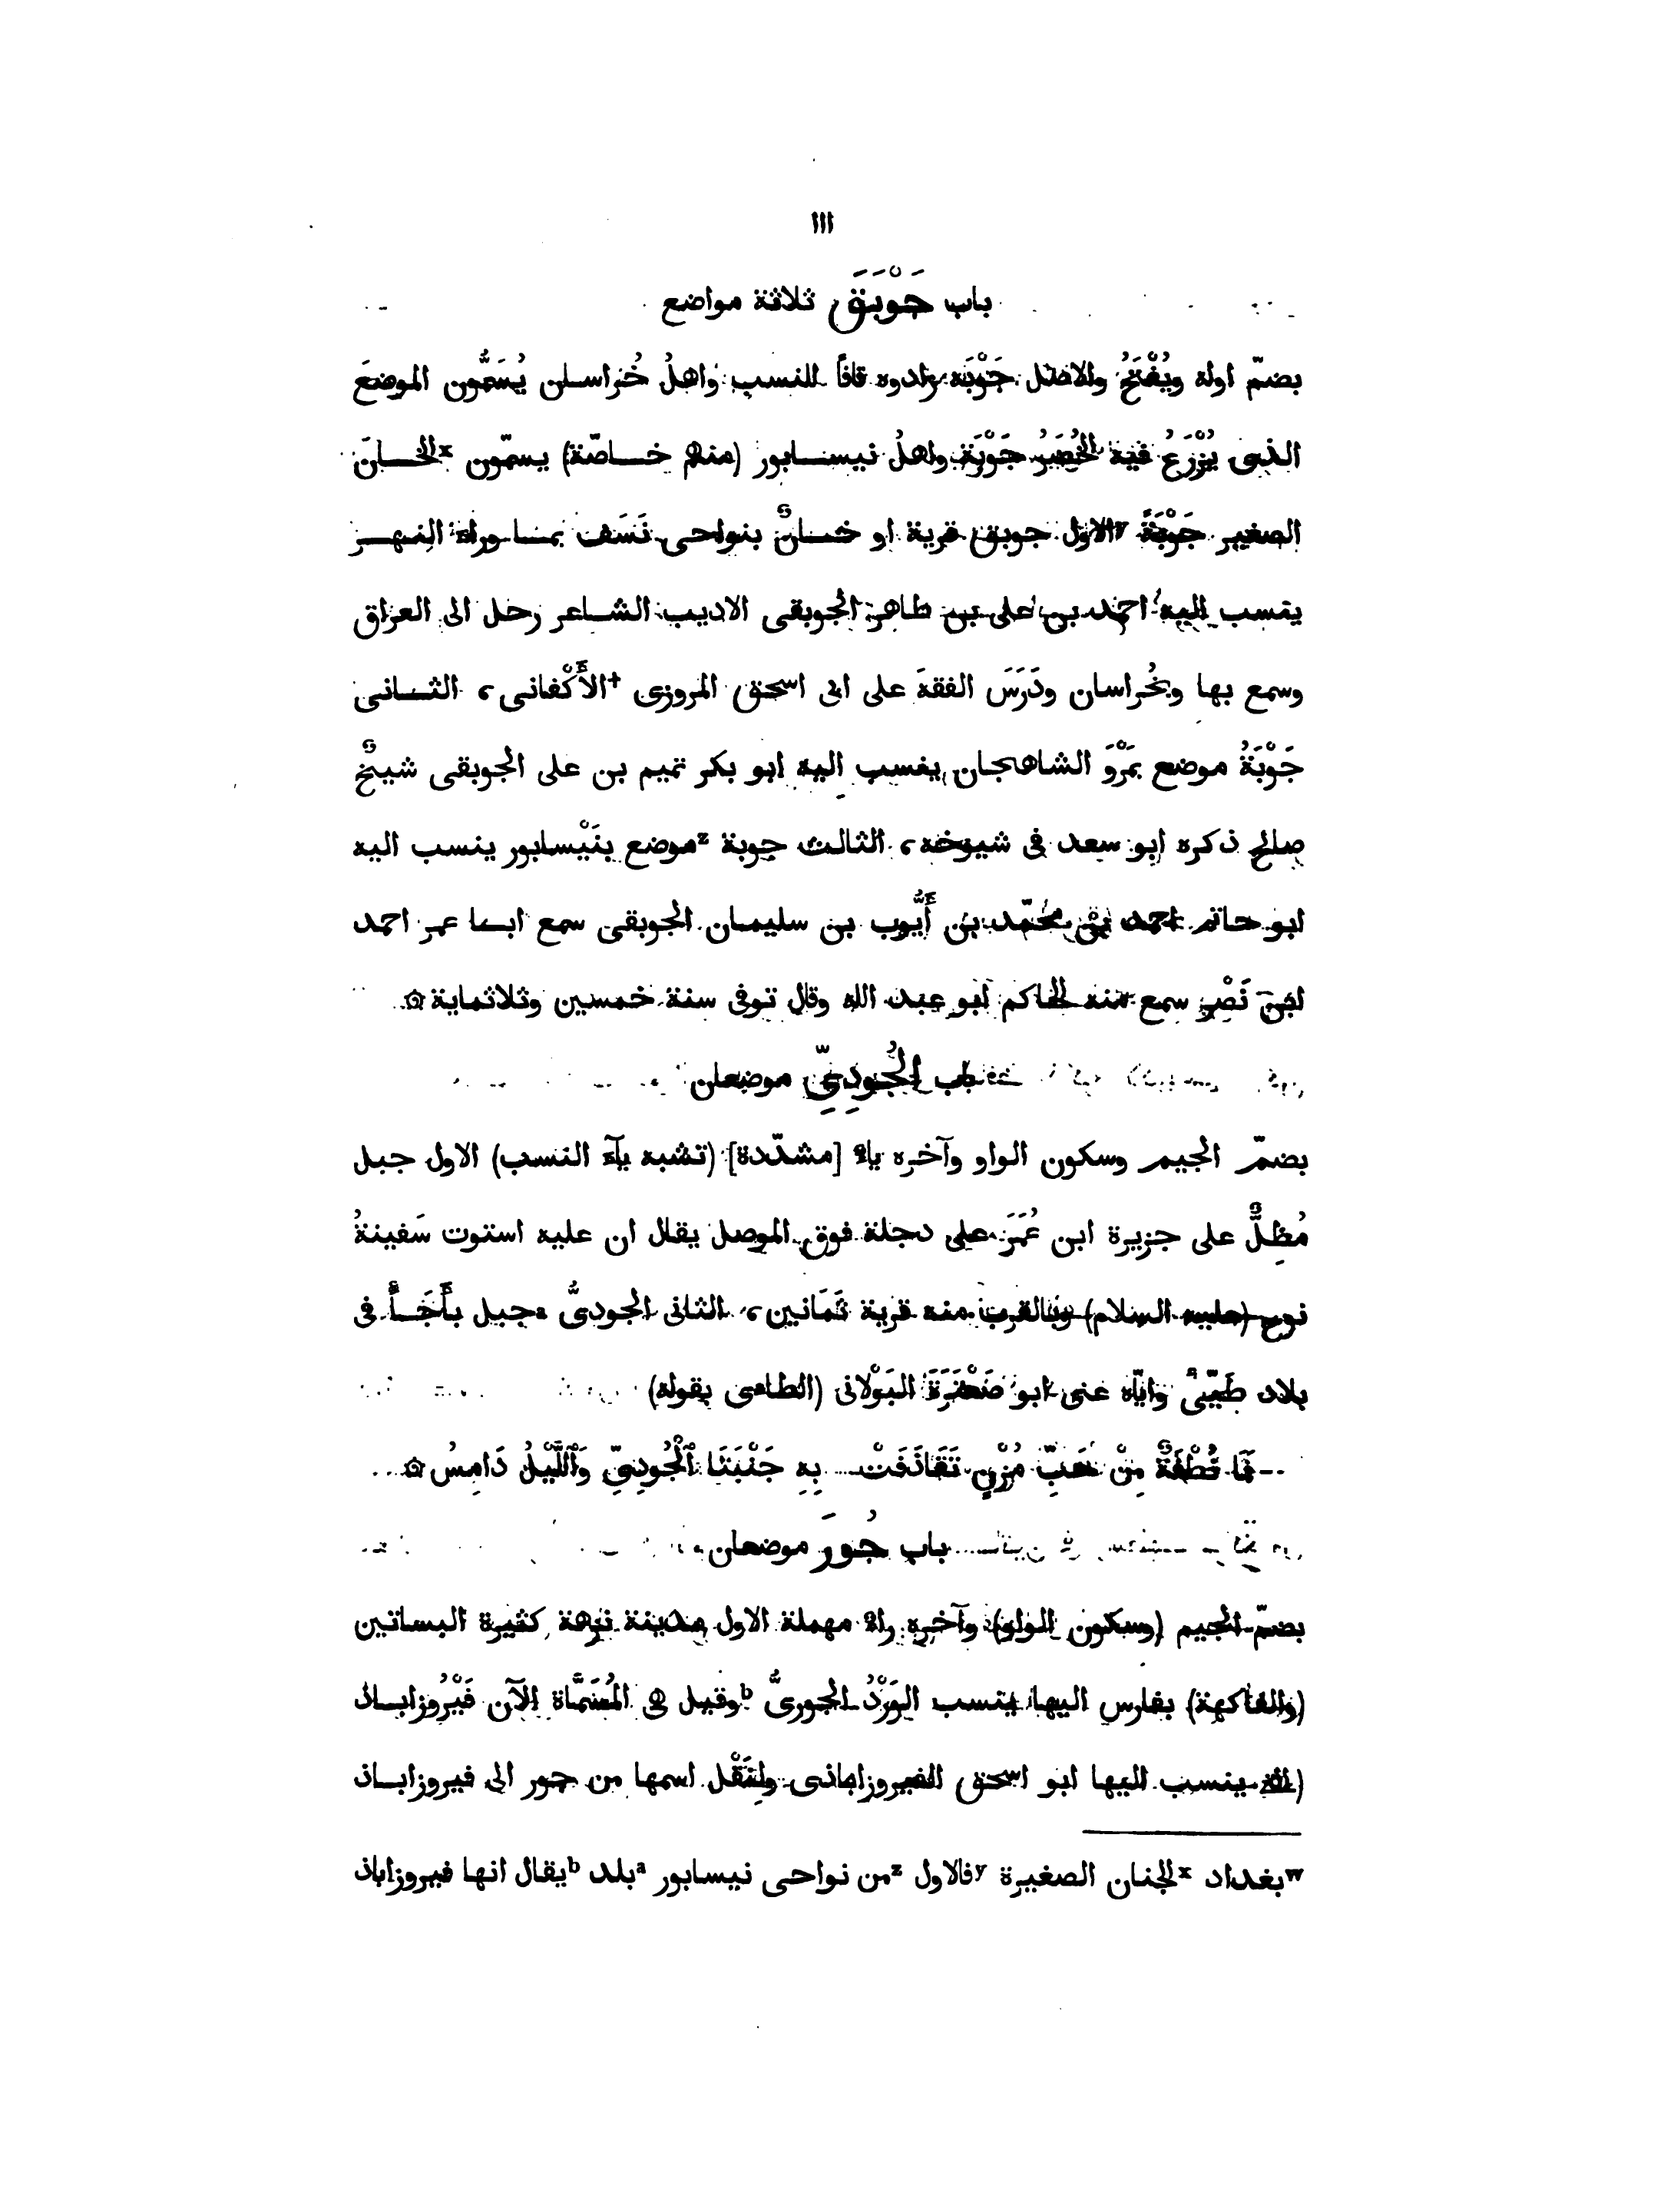 ١١١
باب جَوْبَقَ ثلاثة مواضع
بضمّ اوله ويُفْتَحُ والاصل جَوْبَه زادوه قافًا للنسب واهلُ خُراسان يُسَمُّون الموضعَ
الذى يُزْرَعُ فيه الخُضَرُ جَوْبَة واهلُ نيسابور (منهم خاصّة) يسمّون ˣالخانَ
الصغير جَوْبَةً ʸالاول جوبق قرية او خانٌ بنواحى نَسَف بما وراء النهر
ينسب اليه احمد بن على بن طاهر الجوبقى الاديب الشاعر رحل الى العراق
وسمع بها وبخُراسان ودَرَسَ الفقهَ على ابى اسحق المروزى +الأَكْفانى، الثانى
جَوْبَةُ موضع بمَرْوَ الشاهجان ينسب اليه ابو بكر تميم بن على الجوبقى شيخٌ
صالح ذكره ابو سعد فى شيوخه، الثالث جوبة ᶻموضع بنَيْسابور ينسب اليه
ابو حاتم احمد بن محمّد بن أَيُّوب بن سليمان الجوبقى سمع ابا عمر احمد
ابن نَصْر سمع منه الحاكم ابو عبد الله وقال توفى سنة خمسين وثلاثماية ۞
باب الجُودِىّ موضعان
بضمّ الجيم وسكون الواو وآخره ياء [مشدّدة] (تشبه ياء النسب) الاول جبل
مُظِلٌّ على جزيرة ابن عُمَرَ على دجلة فوق الموصل يقال ان عليه استوت سَفينةُ
نوح (عليه السلام) وبالقرب منه قرية ثَمَانين، الثانى الجودىُّ جبل بأَجَأ فى
بلاد طَيِّئ وايّاه عنى ابو صَعْتَرَةَ البَوْلانى (الطاءى بقوله)
فَمَا نُطْفَةٌ مِنْ حَبِّ مُزْنٍ تَقَاذَفَتْ بِهِ جَنْبَتَا ٱلْجُودِىِّ وَٱللَّيْلُ دَامِسُ ۞
باب جُورَ موضعان
بضمّ الجيم (وسكون الواو) وآخره راء مهملة الاول مدينة نزهة كثيرة البساتين
(والفاكهة) بفارس اليها ينسب الوَرْدُ الجورىُّ ᵇوقيل هى المُسَمَّاة الآن فَيْرُوزاباذ
( ينسب اليها ابو اسحق الفيروزاباذى وانتَقَل اسمها من جور الى فيروزاباذ
ʷبغداد ˣالجنان الصغيرة ʸفالاول ᶻمن نواحى نيسابور ᵃبلد ᵇيقال انها فيروزاباذ